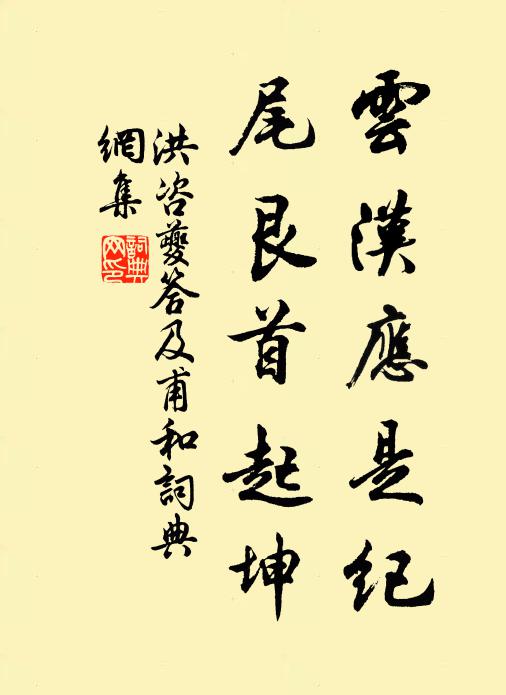 雲漢應是紀
尾艮首起坤
洪咨夔答及甫和詞典
網集
詞典網印